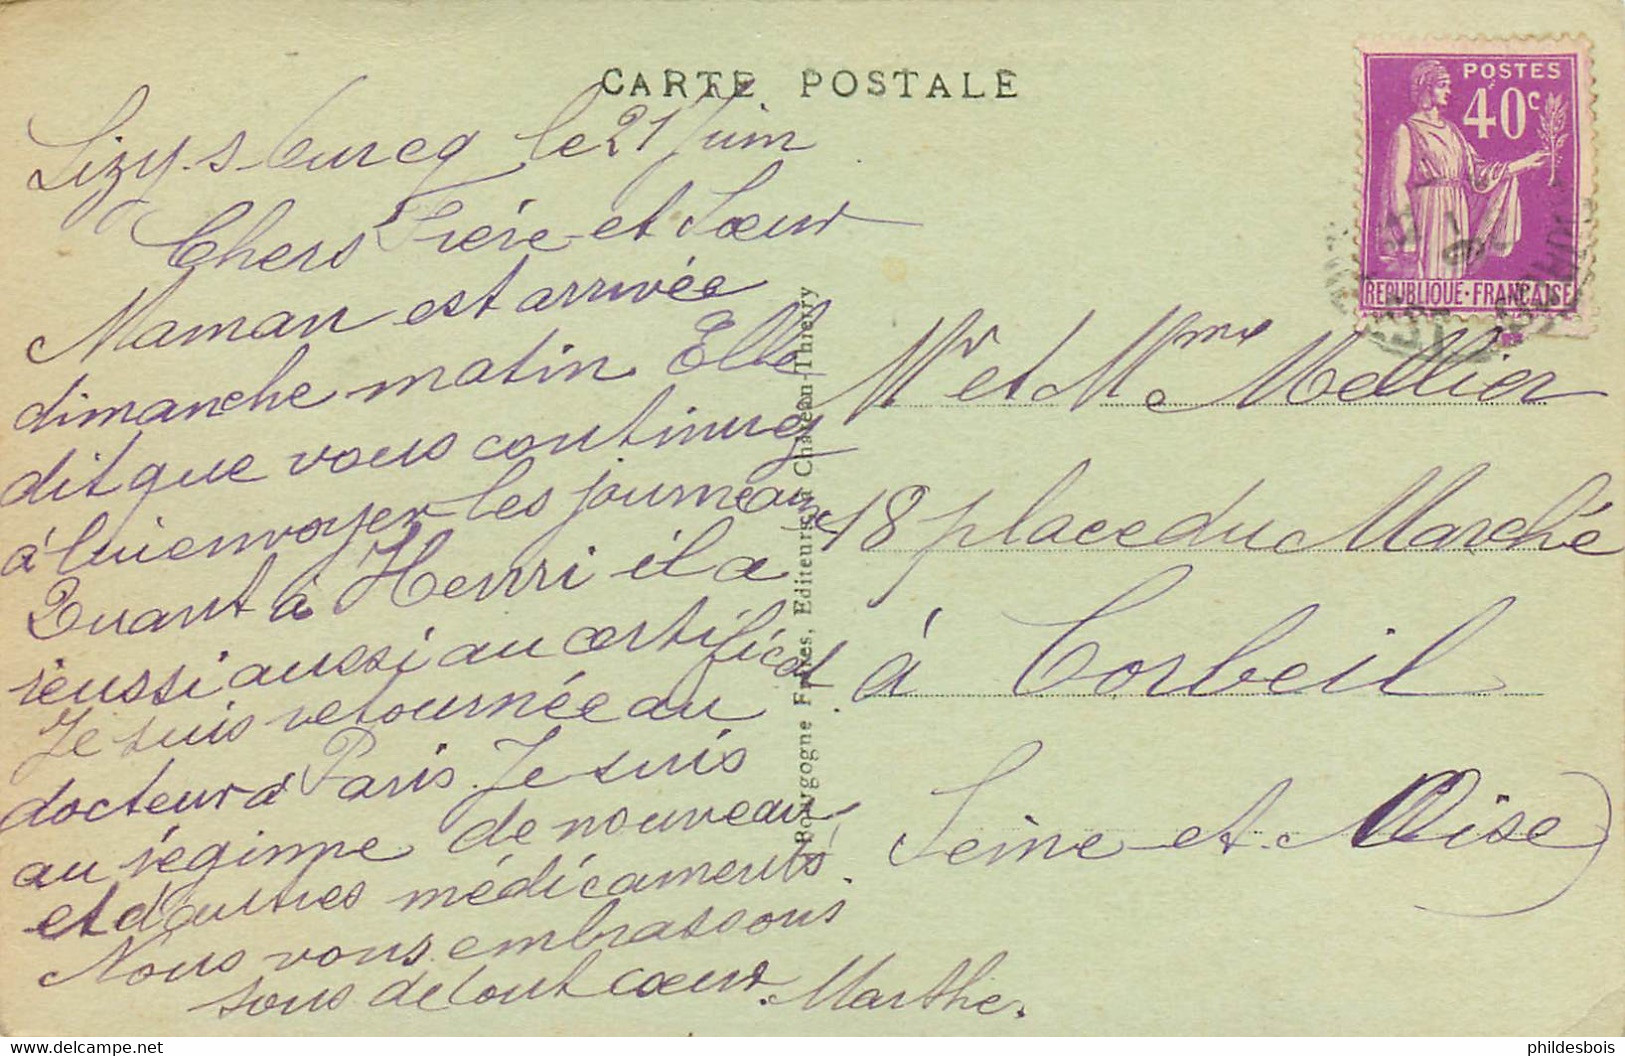 CARTE POSTALE
Lizy-s-Ourcq le 21 Juin
Chers Frère et Sœur
Maman est arrivée
dimanche matin Elle
dit que vous continuez
à lui envoyer les journeaux
Quant à Henri il a
réussi aussi au certificat
Je suis retournée au
docteur à Paris. Je suis
au régime de nouveau
et d'autres médicaments.
Nous vous embrassons
tous de tout cœur. Marthe.
Bourgogne Frères, Editeurs à Château-Thierry
POSTES
40c
REPUBLIQUE·FRANÇAISE
Mr et Mme Mellier
18 place du Marché
à Corbeil
Seine-et-Oise)
phildesbois